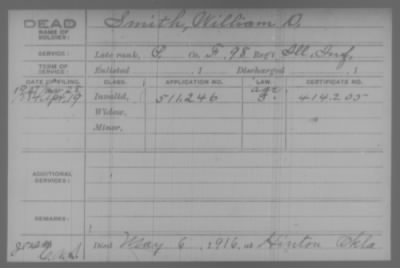 DEAD
NAME OF SOLDIER:
Smith, William D.
SERVICE:
Late rank, C, Co. F, 98 Reg't Ill. Inf.
TERM OF SERVICE:
Enlisted , 1 Discharged , 1
DATE OF FILING. CLASS. APPLICATION NO. LAW. CERTIFICATE NO.
Mar 28 age
Apr. 19 Invalid, 511.246 414.205
Widow,
Minor,
ADDITIONAL SERVICES:
REMARKS:
Died May 6, 1916, at Hinton Okla